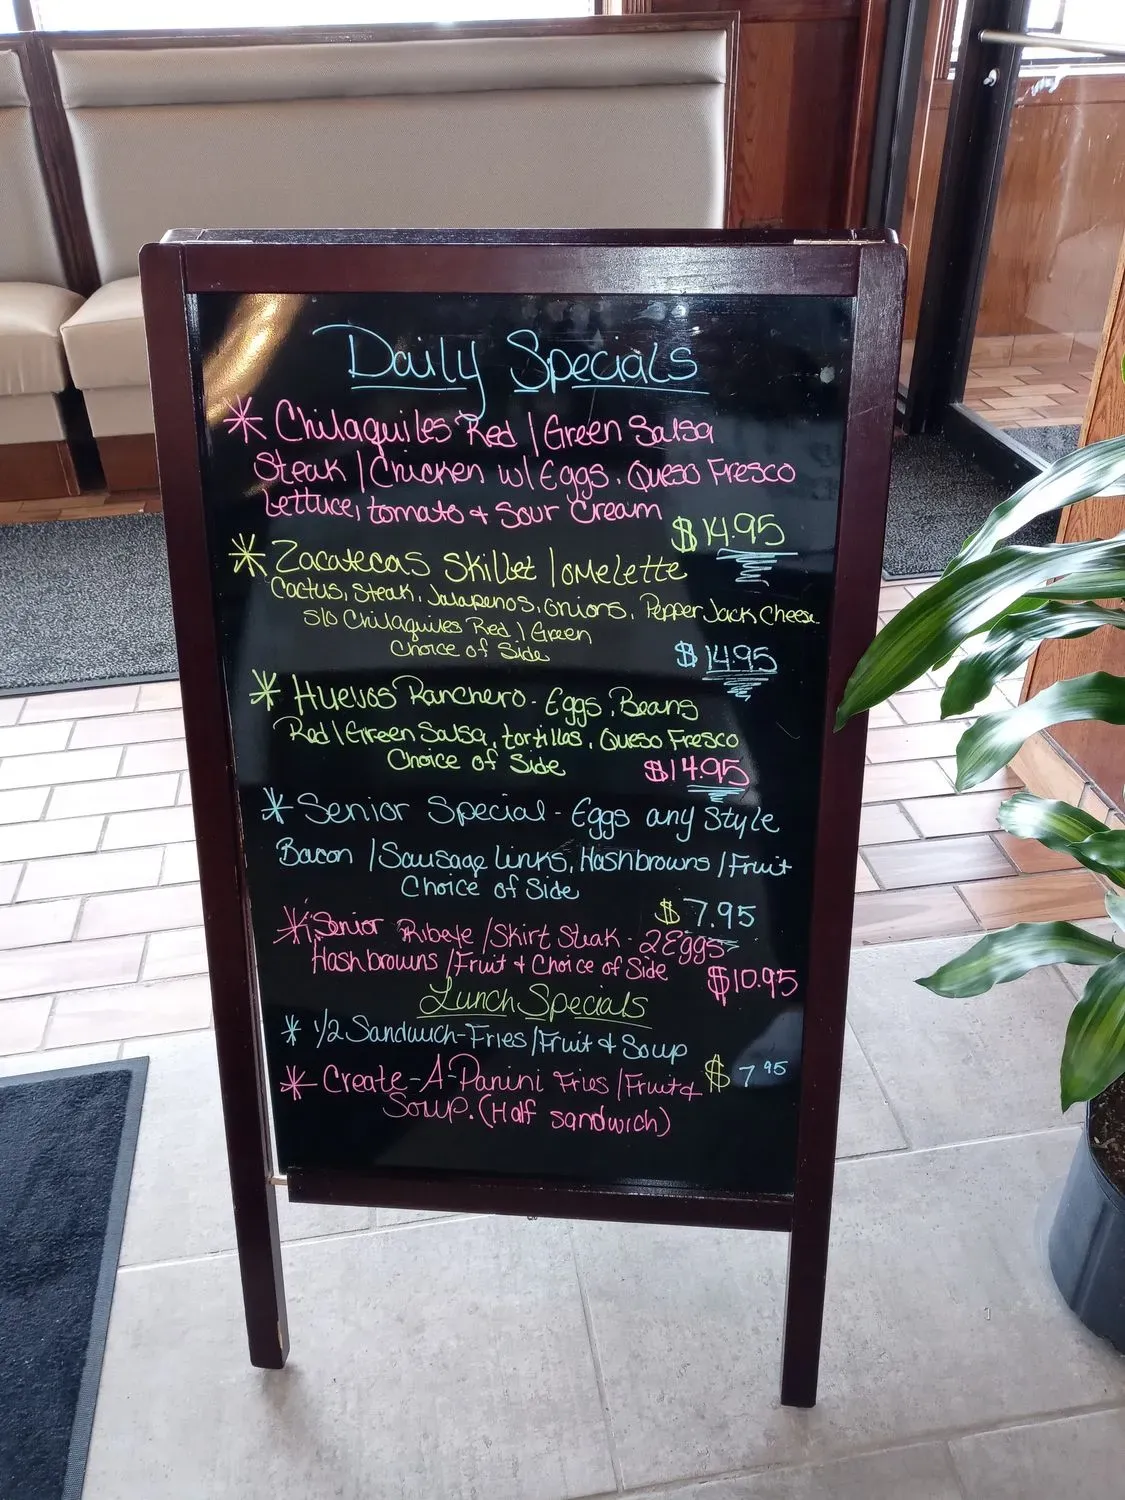 Daily Specials
* Chilaquiles Red / Green Salsa
Steak / Chicken w/ Eggs, Queso Fresco
Lettuce, tomato + Sour Cream
$14.95
* Zacatecas Skillet / omelette
Cactus, Steak, Jalapenos, onions, Pepper Jack Cheese
S/o Chilaquiles Red / Green
Choice of Side
$14.95
* Huevos Ranchero - Eggs, Beans
Red / Green Salsa, tortillas, Queso Fresco
Choice of Side
$14.95
* Senior Special - Eggs any Style
Bacon / Sausage links, Hashbrowns / Fruit
Choice of Side
$7.95
* Senior Ribeye / Skirt Steak - 2 Eggs
Hashbrowns / Fruit + Choice of Side
$10.95
Lunch Specials
* 1/2 Sandwich - Fries / Fruit + Soup
$7.95
* Create-A-Panini Fries / Fruit +
Soup. (Half sandwich)